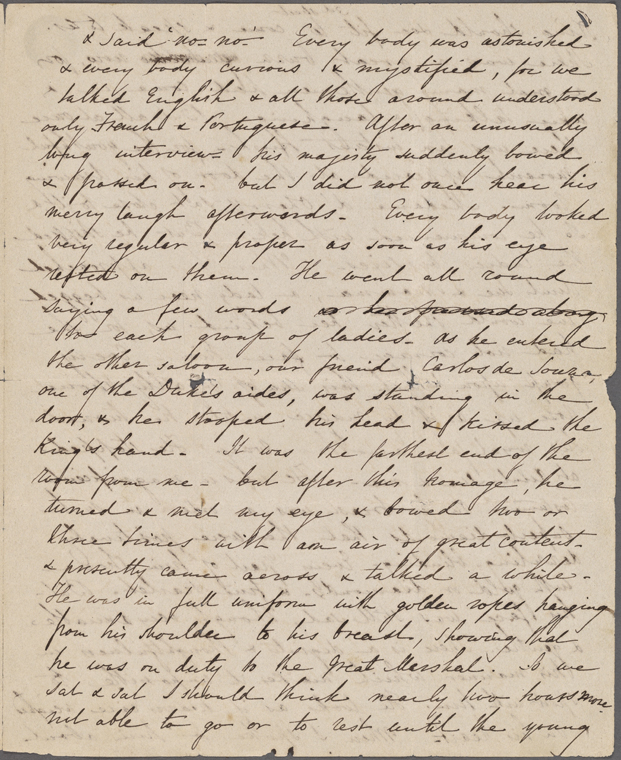 & said "no- no-" Every body was astonished
& every body curious & mystified, for we
talked English & all those around understood
only French & Portuguese. After an unusually
long interview- his majesty suddenly bowed
& passed on- but I did not once hear his
merry laugh afterwards- Every body looked
very regular & proper as soon as his eye
rested on them- He went all round
saying a few words as he passed along
to each group of ladies- as he entered
the other saloon, our friend Carlos de Souza,
one of the Duke's aides, was standing in the
door, & he stooped his head & kissed the
King's hand- It was the farthest end of the
room from me- but after this homage, he
turned & met my eye, & bowed two or
three times with an air of great content-
& presently came across & talked a while-
He was in full uniform with golden ropes hanging
from his shoulder to his breast, showing that
he was on duty to the great Marshal. So we
sat & sat I should think nearly two hours more
not able to go or to rest until the young